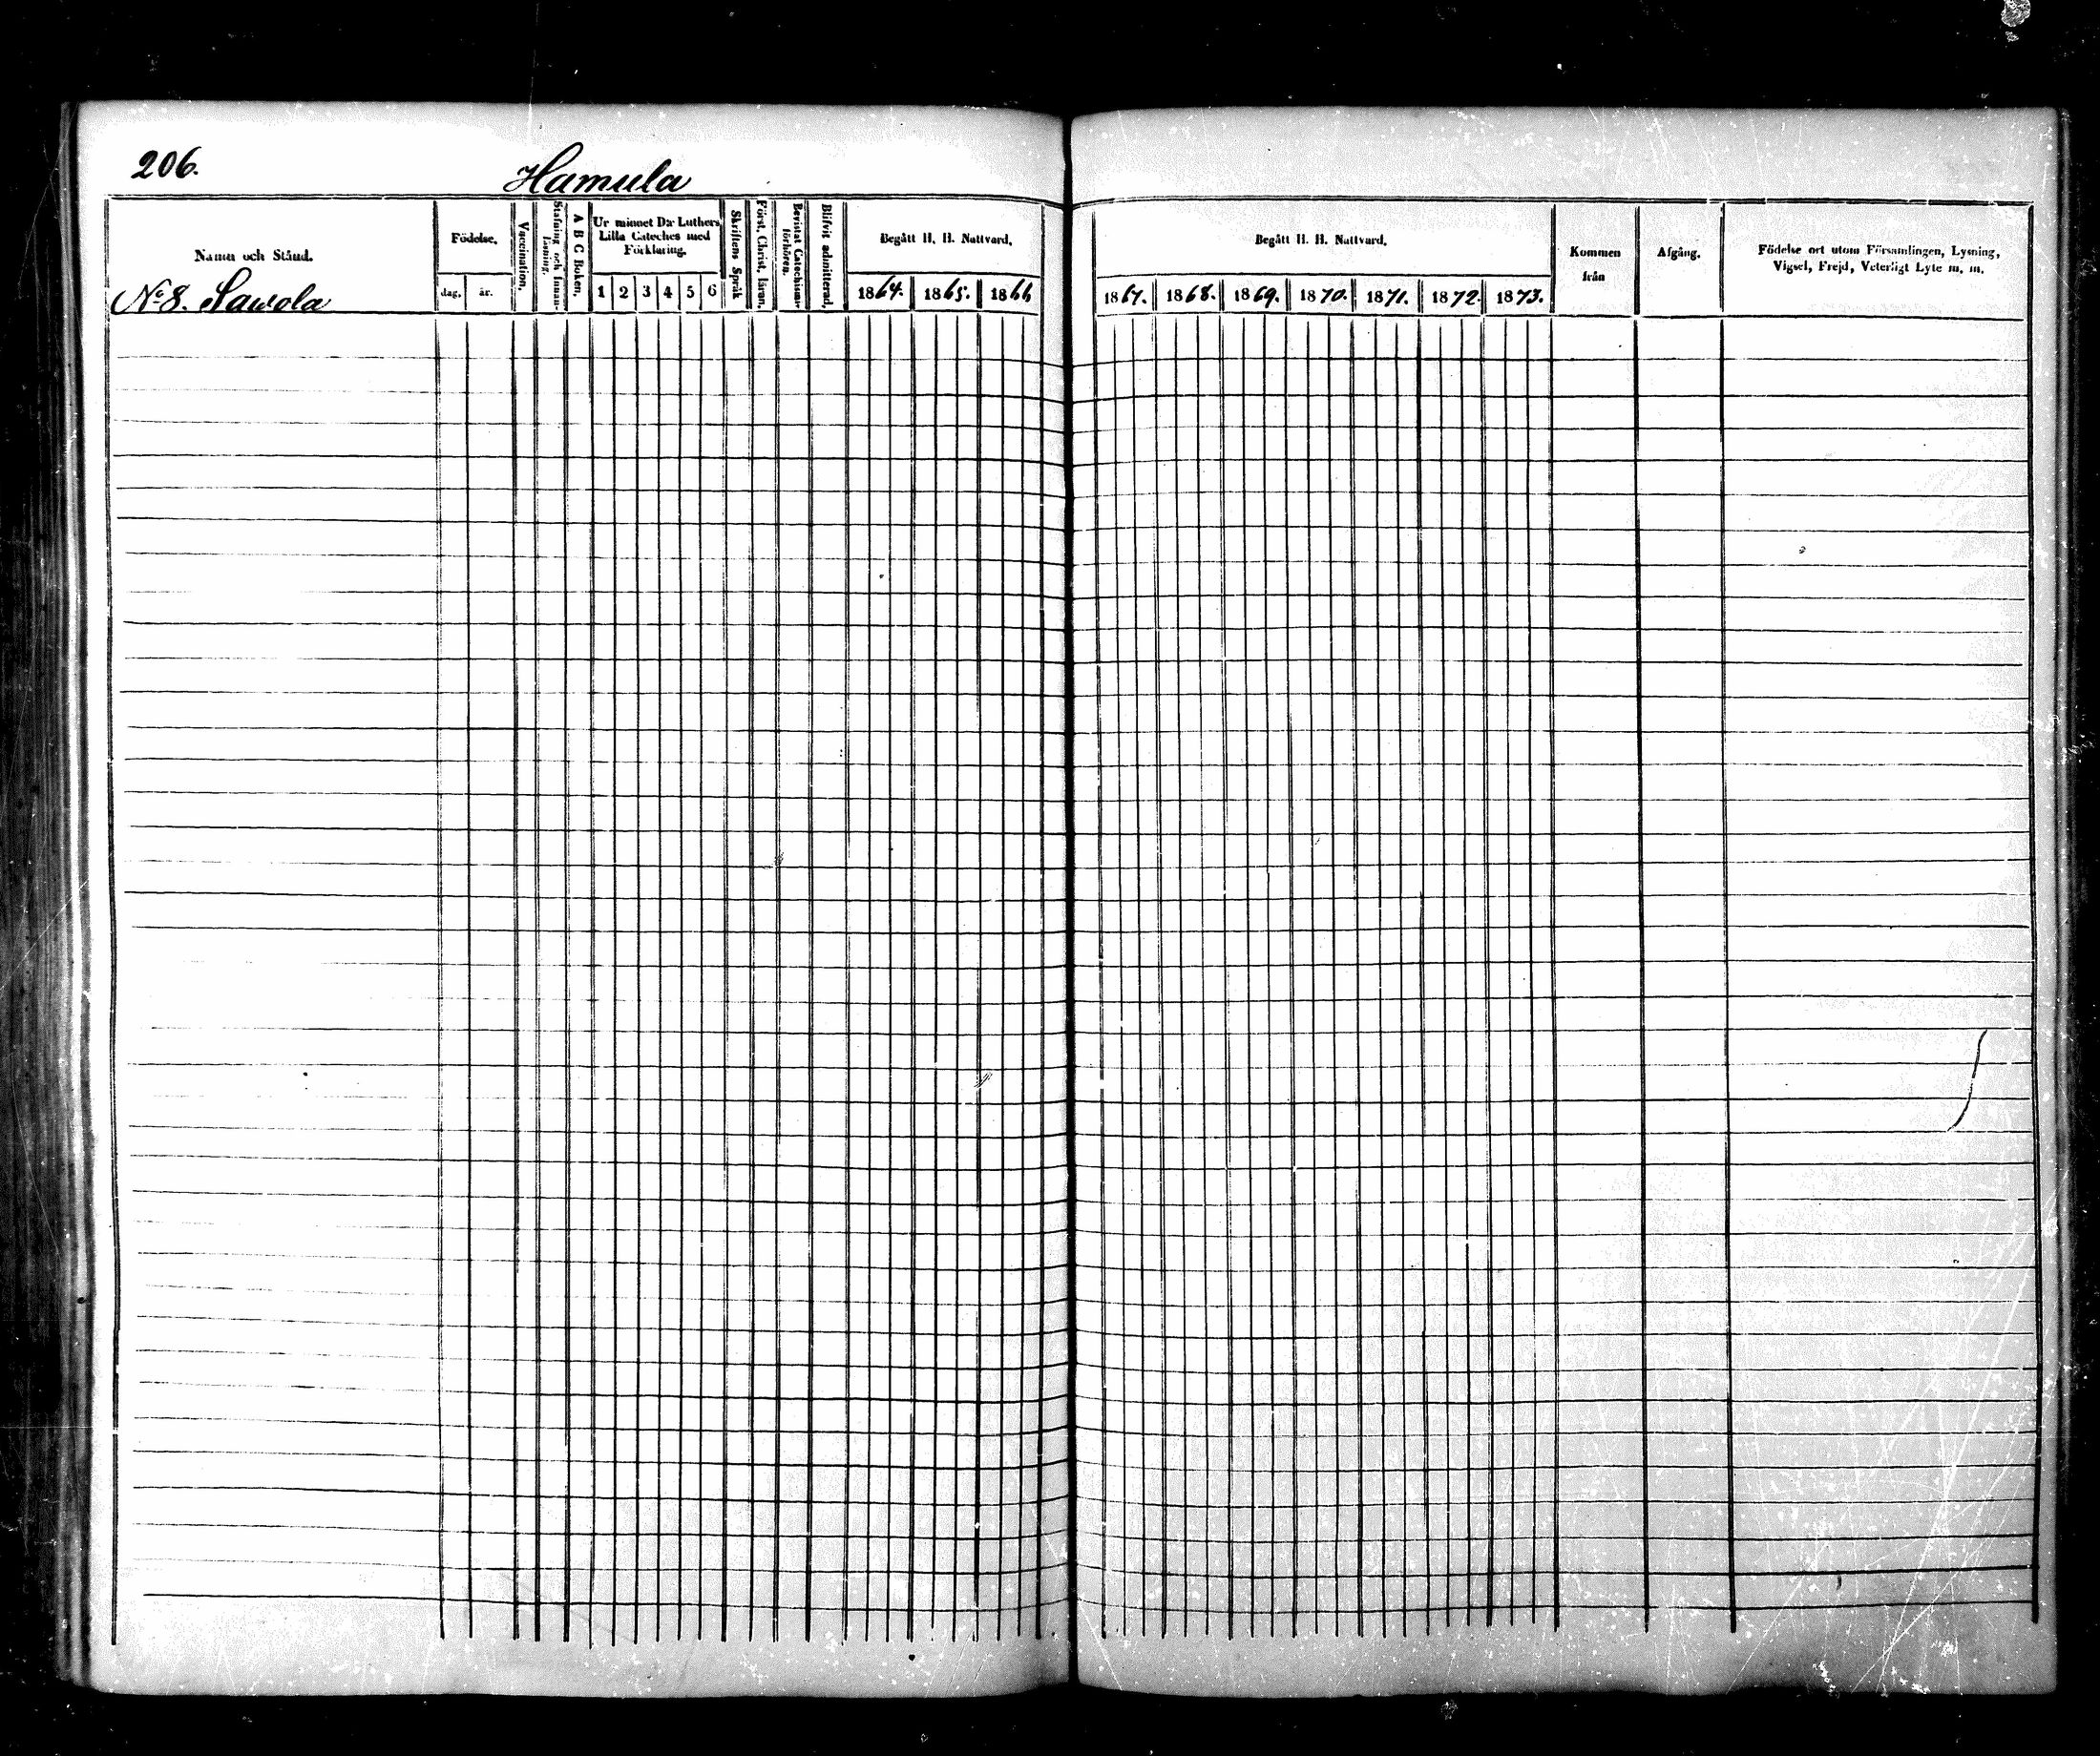 206.
Hamula
Namn och Stånd.
No 8. Sawola
Födelse.
dag.
år.
Vaccination.
Stafning och Innan-
läsning.
A B C Boken.
Ur minnet D:r Luthers
Lilla Cateches med
Förklaring.
1 2 3 4 5 6
Skriftens Språk
Först. Christ. läran.
Bevistat Catechismi-
förhören.
Blifvit admitterad.
Begått H. H. Nattvard.
1864. 1865. 1866
Begått H. H. Nattvard.
1867. 1868. 1869. 1870. 1871. 1872. 1873.
Kommen
från
Afgång.
Födelse ort utom Församlingen, Lysning,
Vigsel, Frejd, Veterligt Lyte m. m.